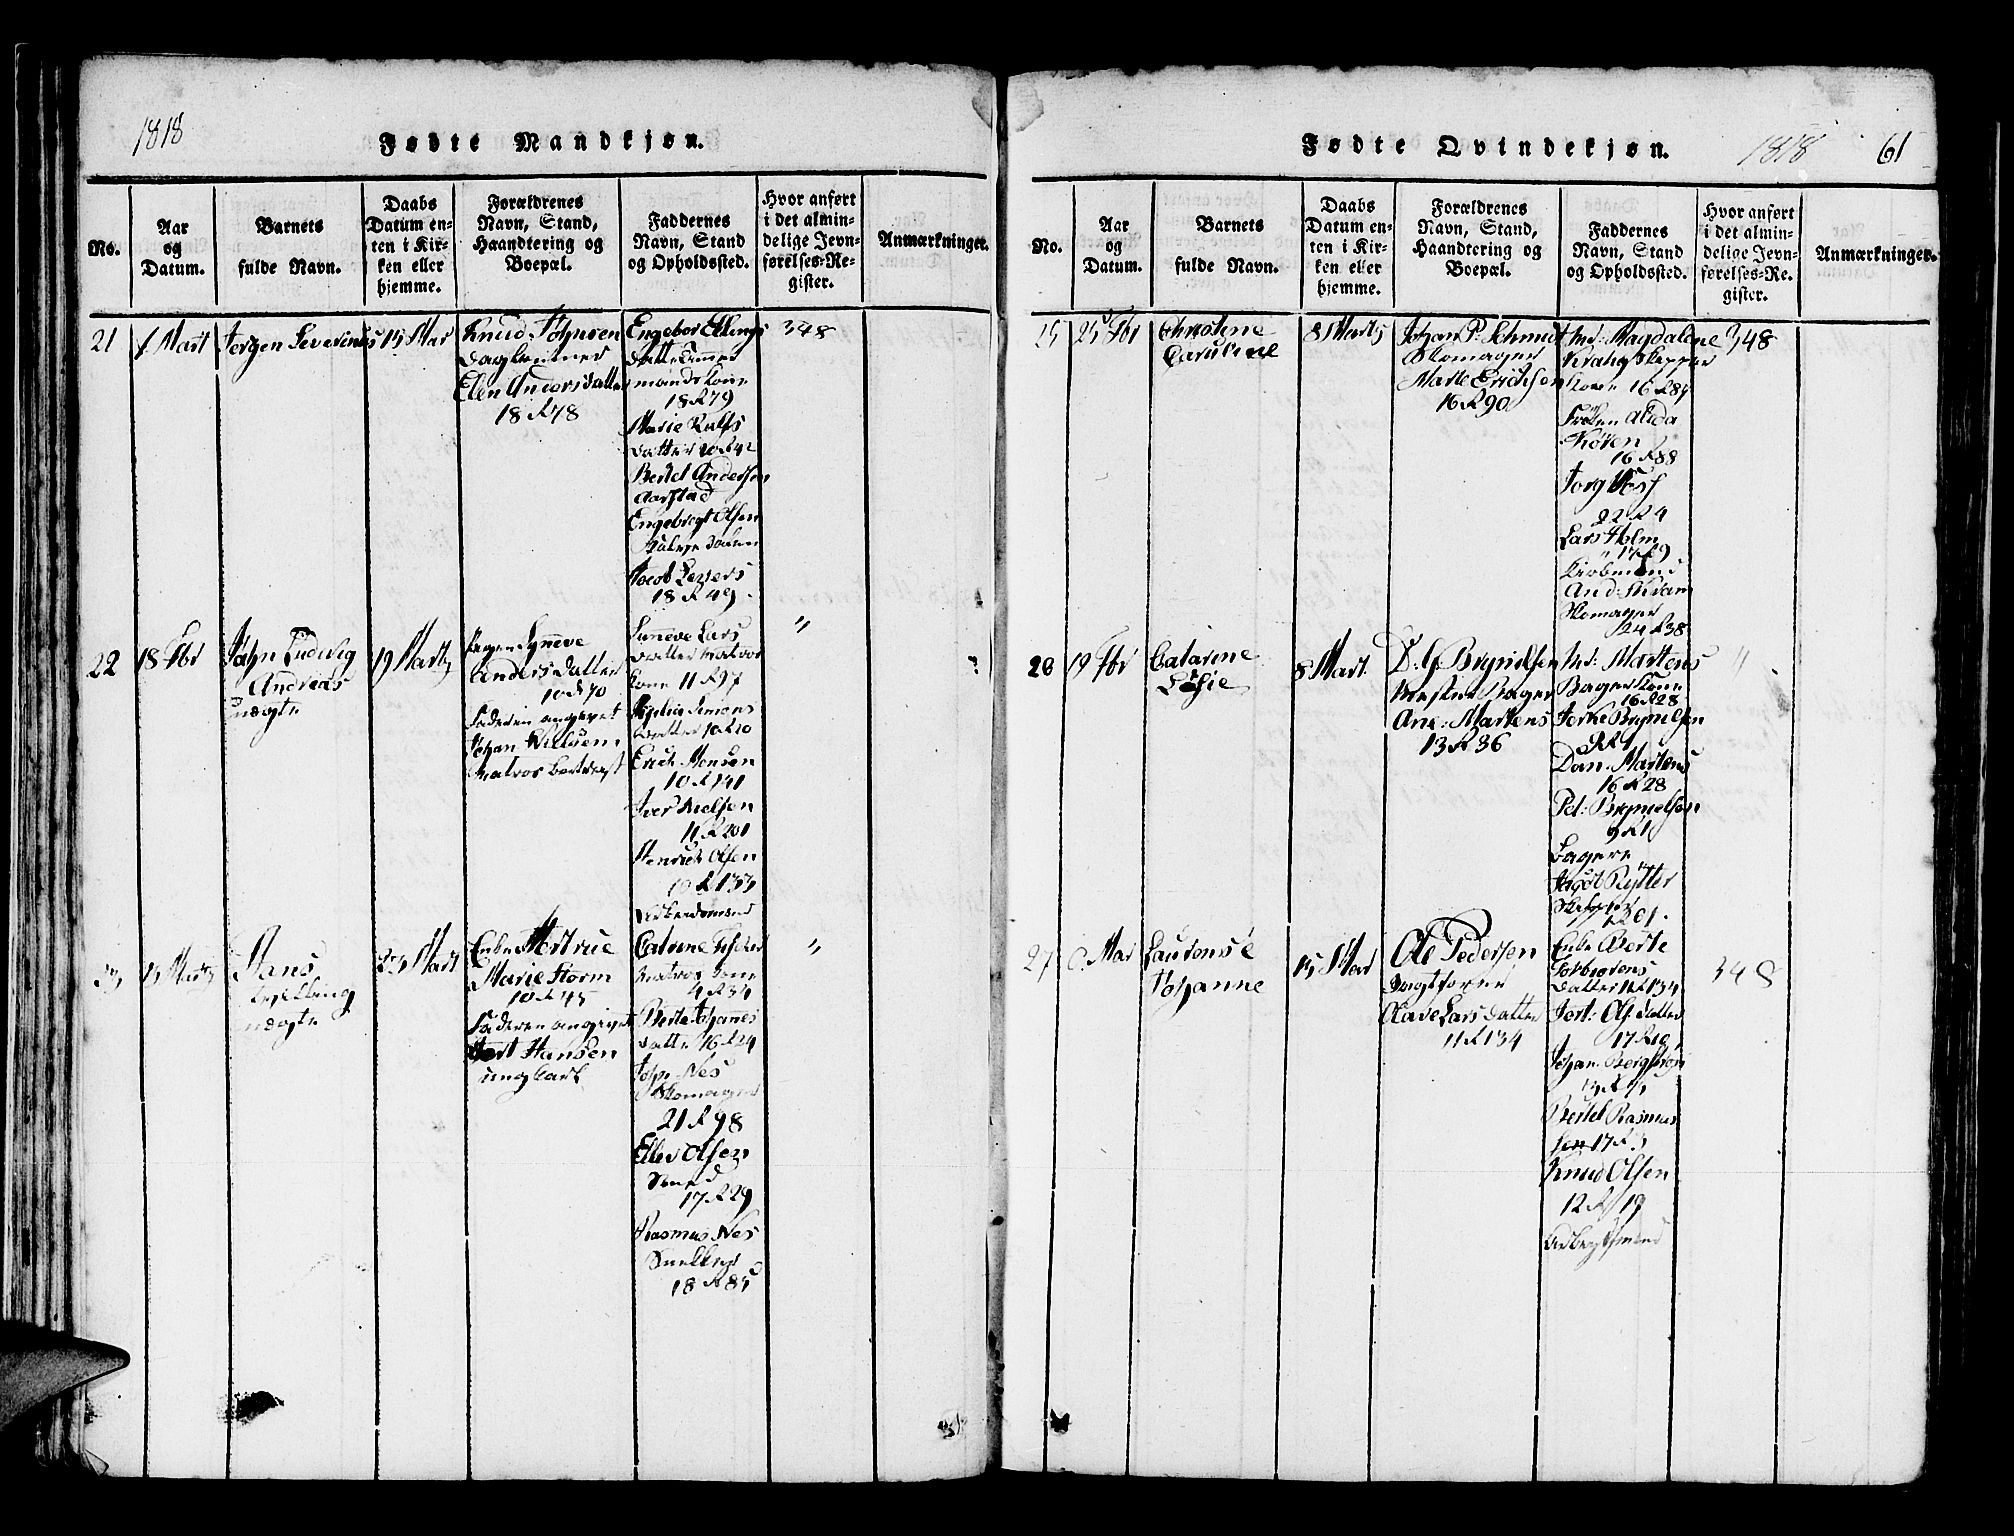 1818
Fødte Mandkjøn.
No.
Aar
og
Datum.
Barnets
fulde Navn.
Daabs
Datum en-
ten i Kir-
ken eller
hjemme.
Forældrenes
Navn, Stand,
Haandtering og
Boepæl.
Faddernes
Navn, Stand
og Opholdssted.
Hvor anført
i det almin-
delige Jevn-
førelses-Re-
gister.
Anmærkninger.
21
Mart
Jørgen Severinus
15 Mar
Knud Johnsen
Elen Anders datter
18 R 78
Engebor Ellings
datter
mands kone
18 R 79
Marie Rolfs
datter 20 R 42
Bertel Andersen
Aarstad
Engebregt Olsen
Jacob Sexers
18 R 49
348
22
18 Fbr
John Ludevig
Andreas
uægte
19 Marts
Synneve
Anders datter
10 R 70
Faderen angivet
Johan Nielsen
Matros
Sunneve Lars
datter Matros
kone 11 R 97
Sophia Simons
datter 10 R 10
Erich Hansen
10 R 141
Iver Nielsen
11 R 201
Henrich Olsen
10 R 133
"
23
13 Marts
Hans
uægte
23 Mart
Enke Mertrue
Marie Storm
10 R 45
Faderen angivet
Hans Hansen
ung Carl
Catrine Fischer
Matros kone
4 R 34
Berte Johannes
datter 16 R 24
John Næs
Skomager
21 R 98
Eller Olsen
Smed
17 R 29
Rasmus Næs
Snekker
18 R 85
"
Fødte Qvindekjøn.
1818
61
No.
Aar
og
Datum.
Barnets
fulde Navn.
Daabs
Datum en-
ten i Kir-
ken eller
hjemme.
Forældrenes
Navn, Stand,
Haandtering og
Boepæl.
Faddernes
Navn, Stand
og Opholdssted.
Hvor anført
i det almin-
delige Jevn-
førelses-Re-
gister.
Anmærkninger.
25
25 Fbr
Christine
Caroline
8 Marts
Johan P. Schmidt
Skomager
Marte Erichsen
16 R 90
Md: Magdalene
Krahn Skipper
kone 16 R 87
Frøken Alida
Kören
16 R 88
Jørg Voss
22 R 4
Lars Holm
17 R 9
Kiøbmænd
And: Kram
Skomager
24 R 38
348
26
19 Fbr
Catarine
Sofie
8 Mart
D: G Brynildsen
Mester Bager
Ane: Martens
13 R 36
Md: Martens
Bager kone
16 R 28
Torke Brynelsen
9 R 1
Dan: Martens
16 R 28
Pet: Brynelsen
9 R 1
Bagere
Jacob Rytter
Skipper
"
27
Mar
Laurense
Johanne
15 Mar
Ole Pedersen
Vogtfører
Olave Lars datter
11 R 134
Enke Berte
Torbiørens
datter 11 R 134
Jort: Ols datter
17 R 10
Johan Bergstrøm
Bertel Rasmus
sen 17 R 3
Knud Olsen
12 R 19
Arbeydsmænd
348